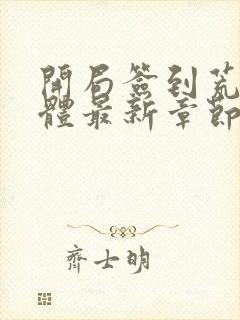 開局簽到荒
體最新章節
齊士明